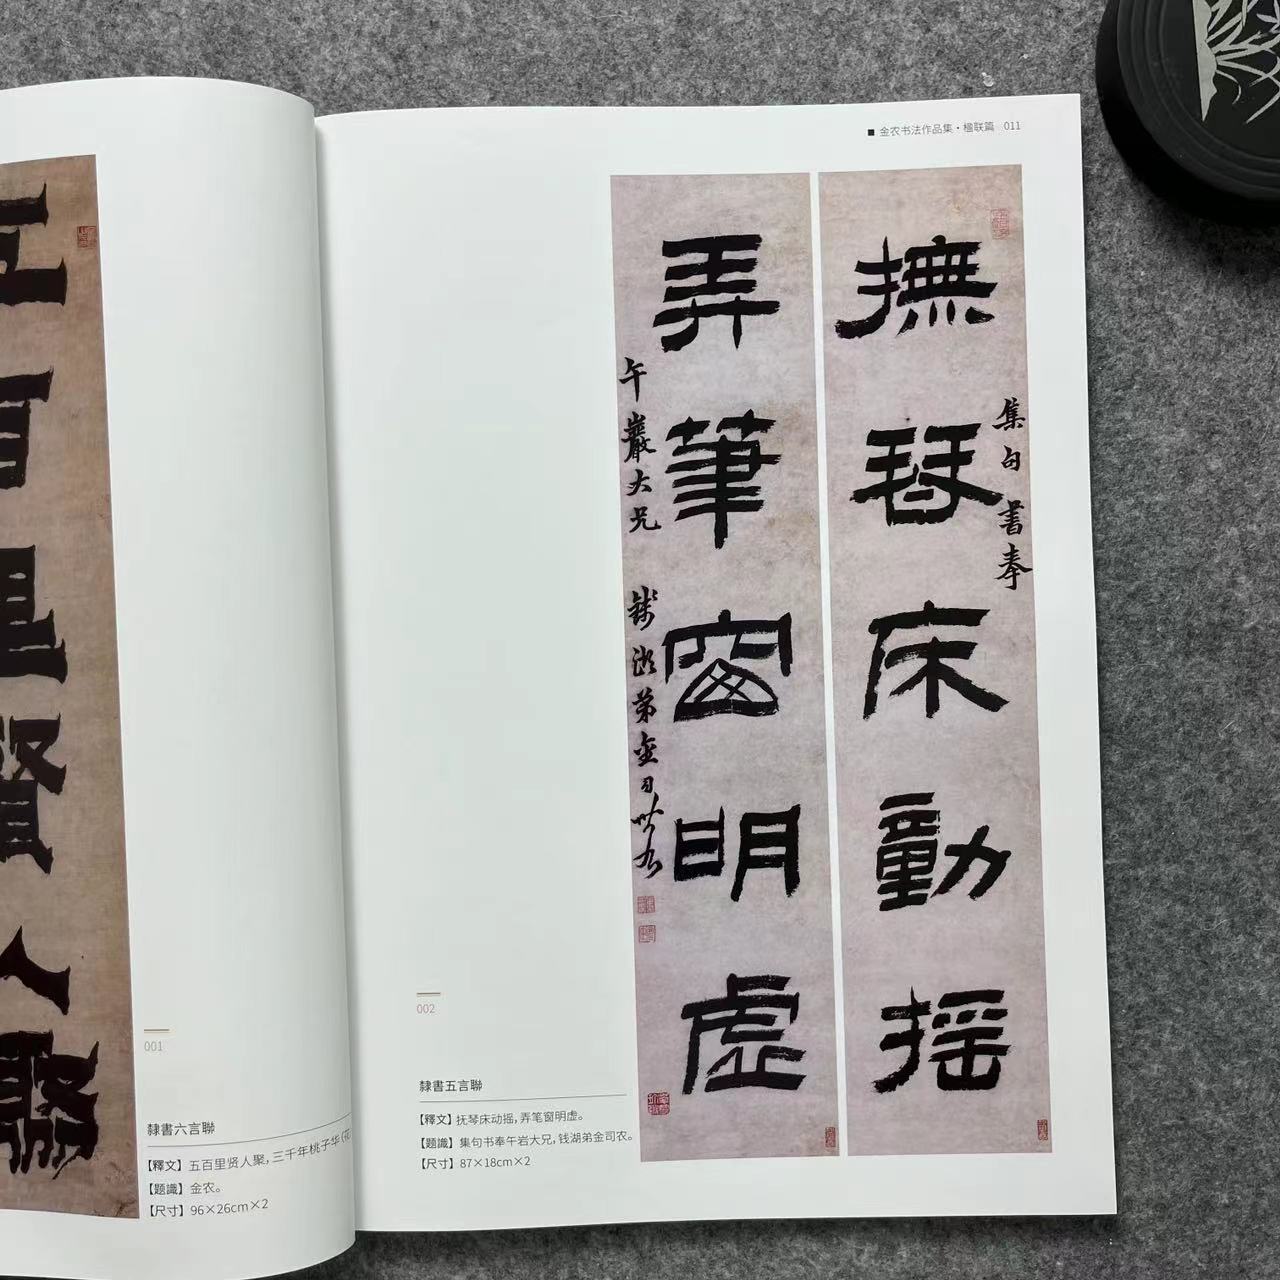 五百里賢人聚
001
隸書六言聯
【釋文】五百里贤人聚，三千年桃子华（花）
【题識】金农。
【尺寸】96×26cm×2
■ 金农书法作品集・楹联篇 011
撫琴床動摇
集句書奉
弄筆窗明虛
午巖大兄 錢湖弟金司農
002
隸書五言聯
【釋文】抚琴床动摇，弄笔窗明虚。
【题識】集句书奉午岩大兄，钱湖弟金司农。
【尺寸】87×18cm×2